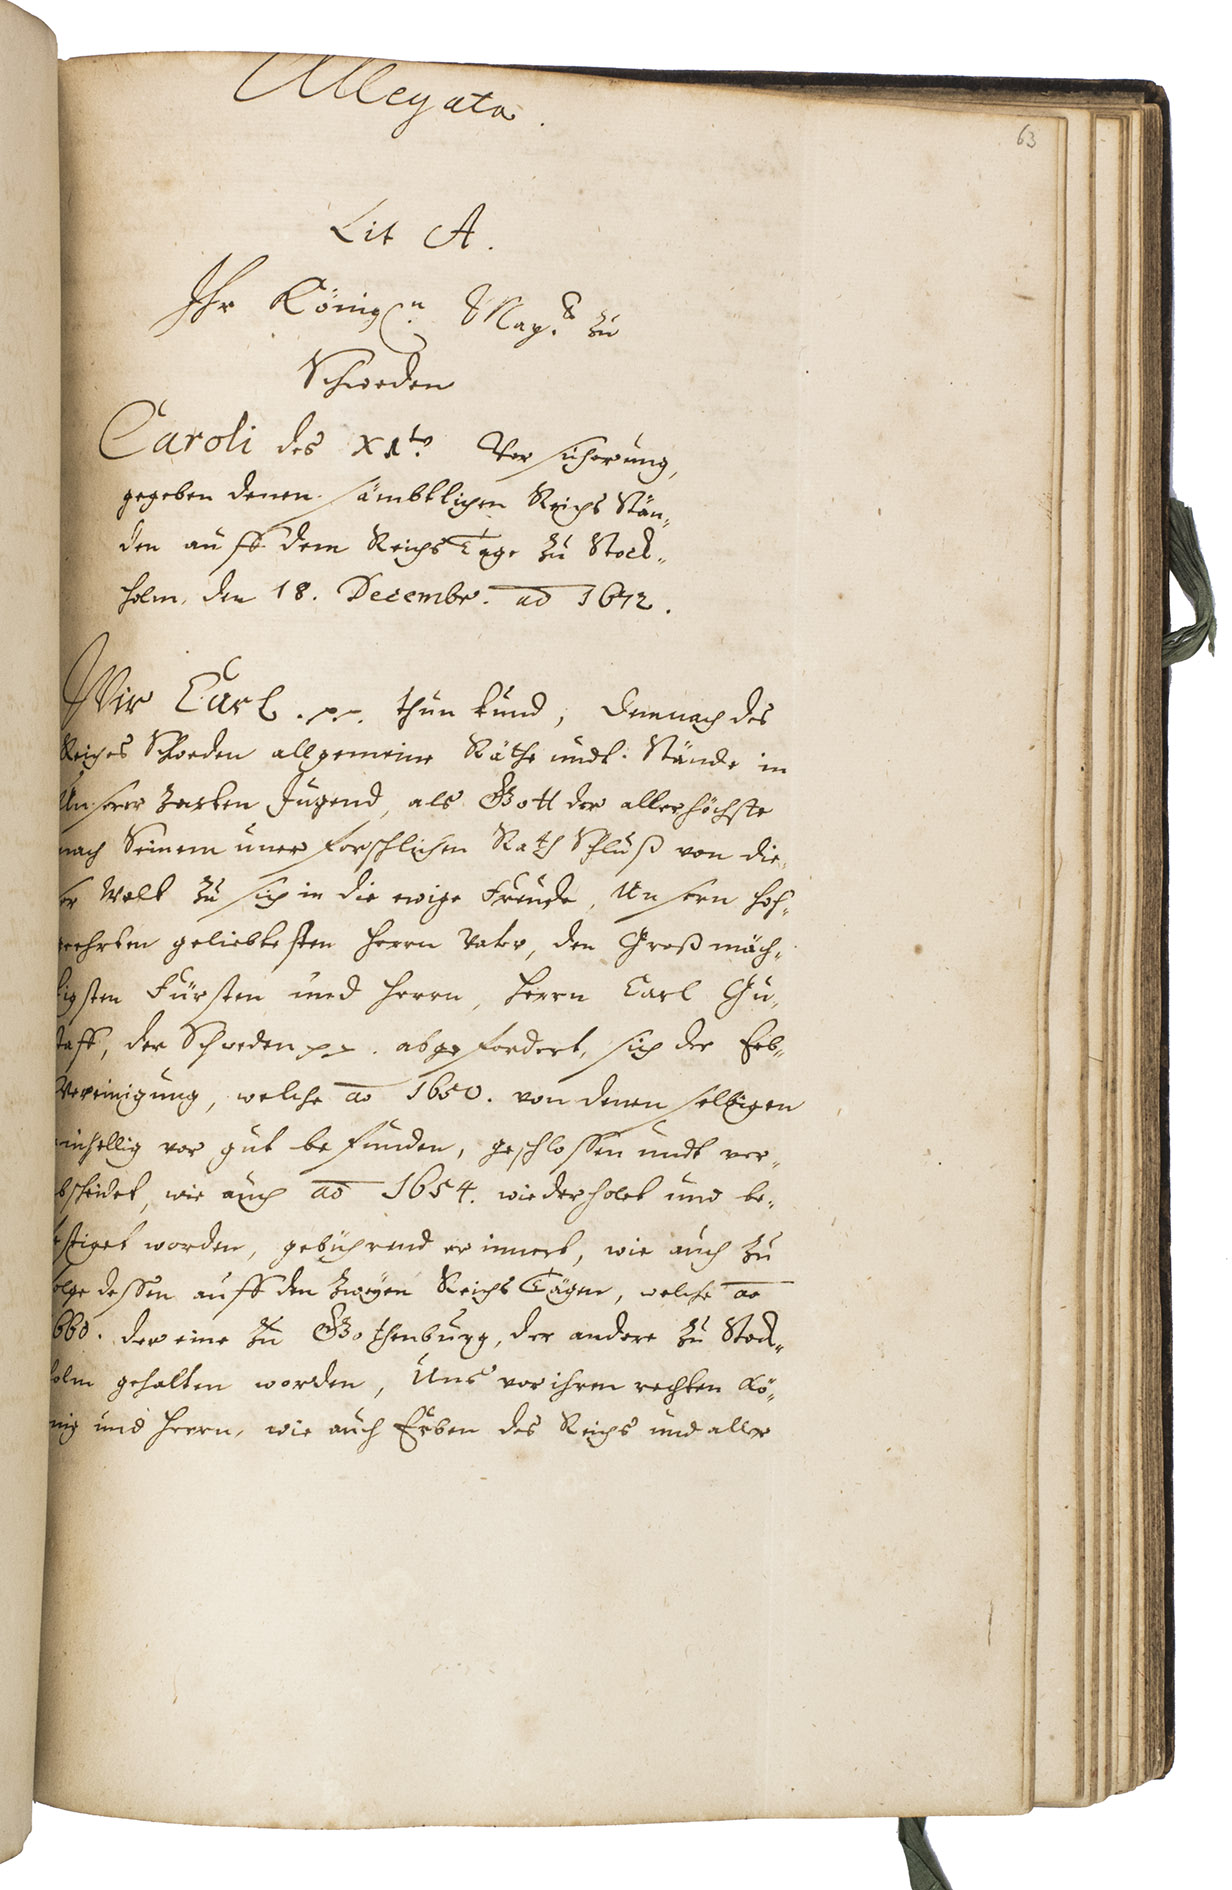 Allegata.
63
Lit A.
Ihr Königln. Mayt. zu
Schweden
Caroli des XIten. Versicherung,
gegeben denen sämbtlichen Reichs Stän-
den auff dem Reichs Tage zu Stock-
holm, den 18. Decembr. ao 1672.
Wir Carl. pp. thun kund, demnach des
Reiches Schweden allgemeine Räthe undt Stände in
Unserer zarten Jugend, als Gott der allerhöchste
nach Seinem unerforschlichen Rath Schluß von die-
ser Welt zu sich in die ewige Freude, Unsern hoch-
geehrten geliebtesten Herrn Vater, den Großmäch-
tigsten Fürsten und Herrn, Herrn Carl Gu-
staff, der Schweden pp. abgefordert, sich der Erb-
Vereinigung, welche ao 1650. von denenselbigen
einhellig vor gut befunden, geschlossen undt ver-
abscheidet, wie auch ao 1654. wiederholet und be-
festiget worden, gebührend erinnert, wie auch zu
folge dessen auff den zweyen Reichs Tägen, welche ao
1660. der eine zu Gothenburg, der andere zu Stock-
holm gehalten worden, Uns vor ihren rechten Kö-
nig und Herrn, wie auch Erben des Reichs und aller